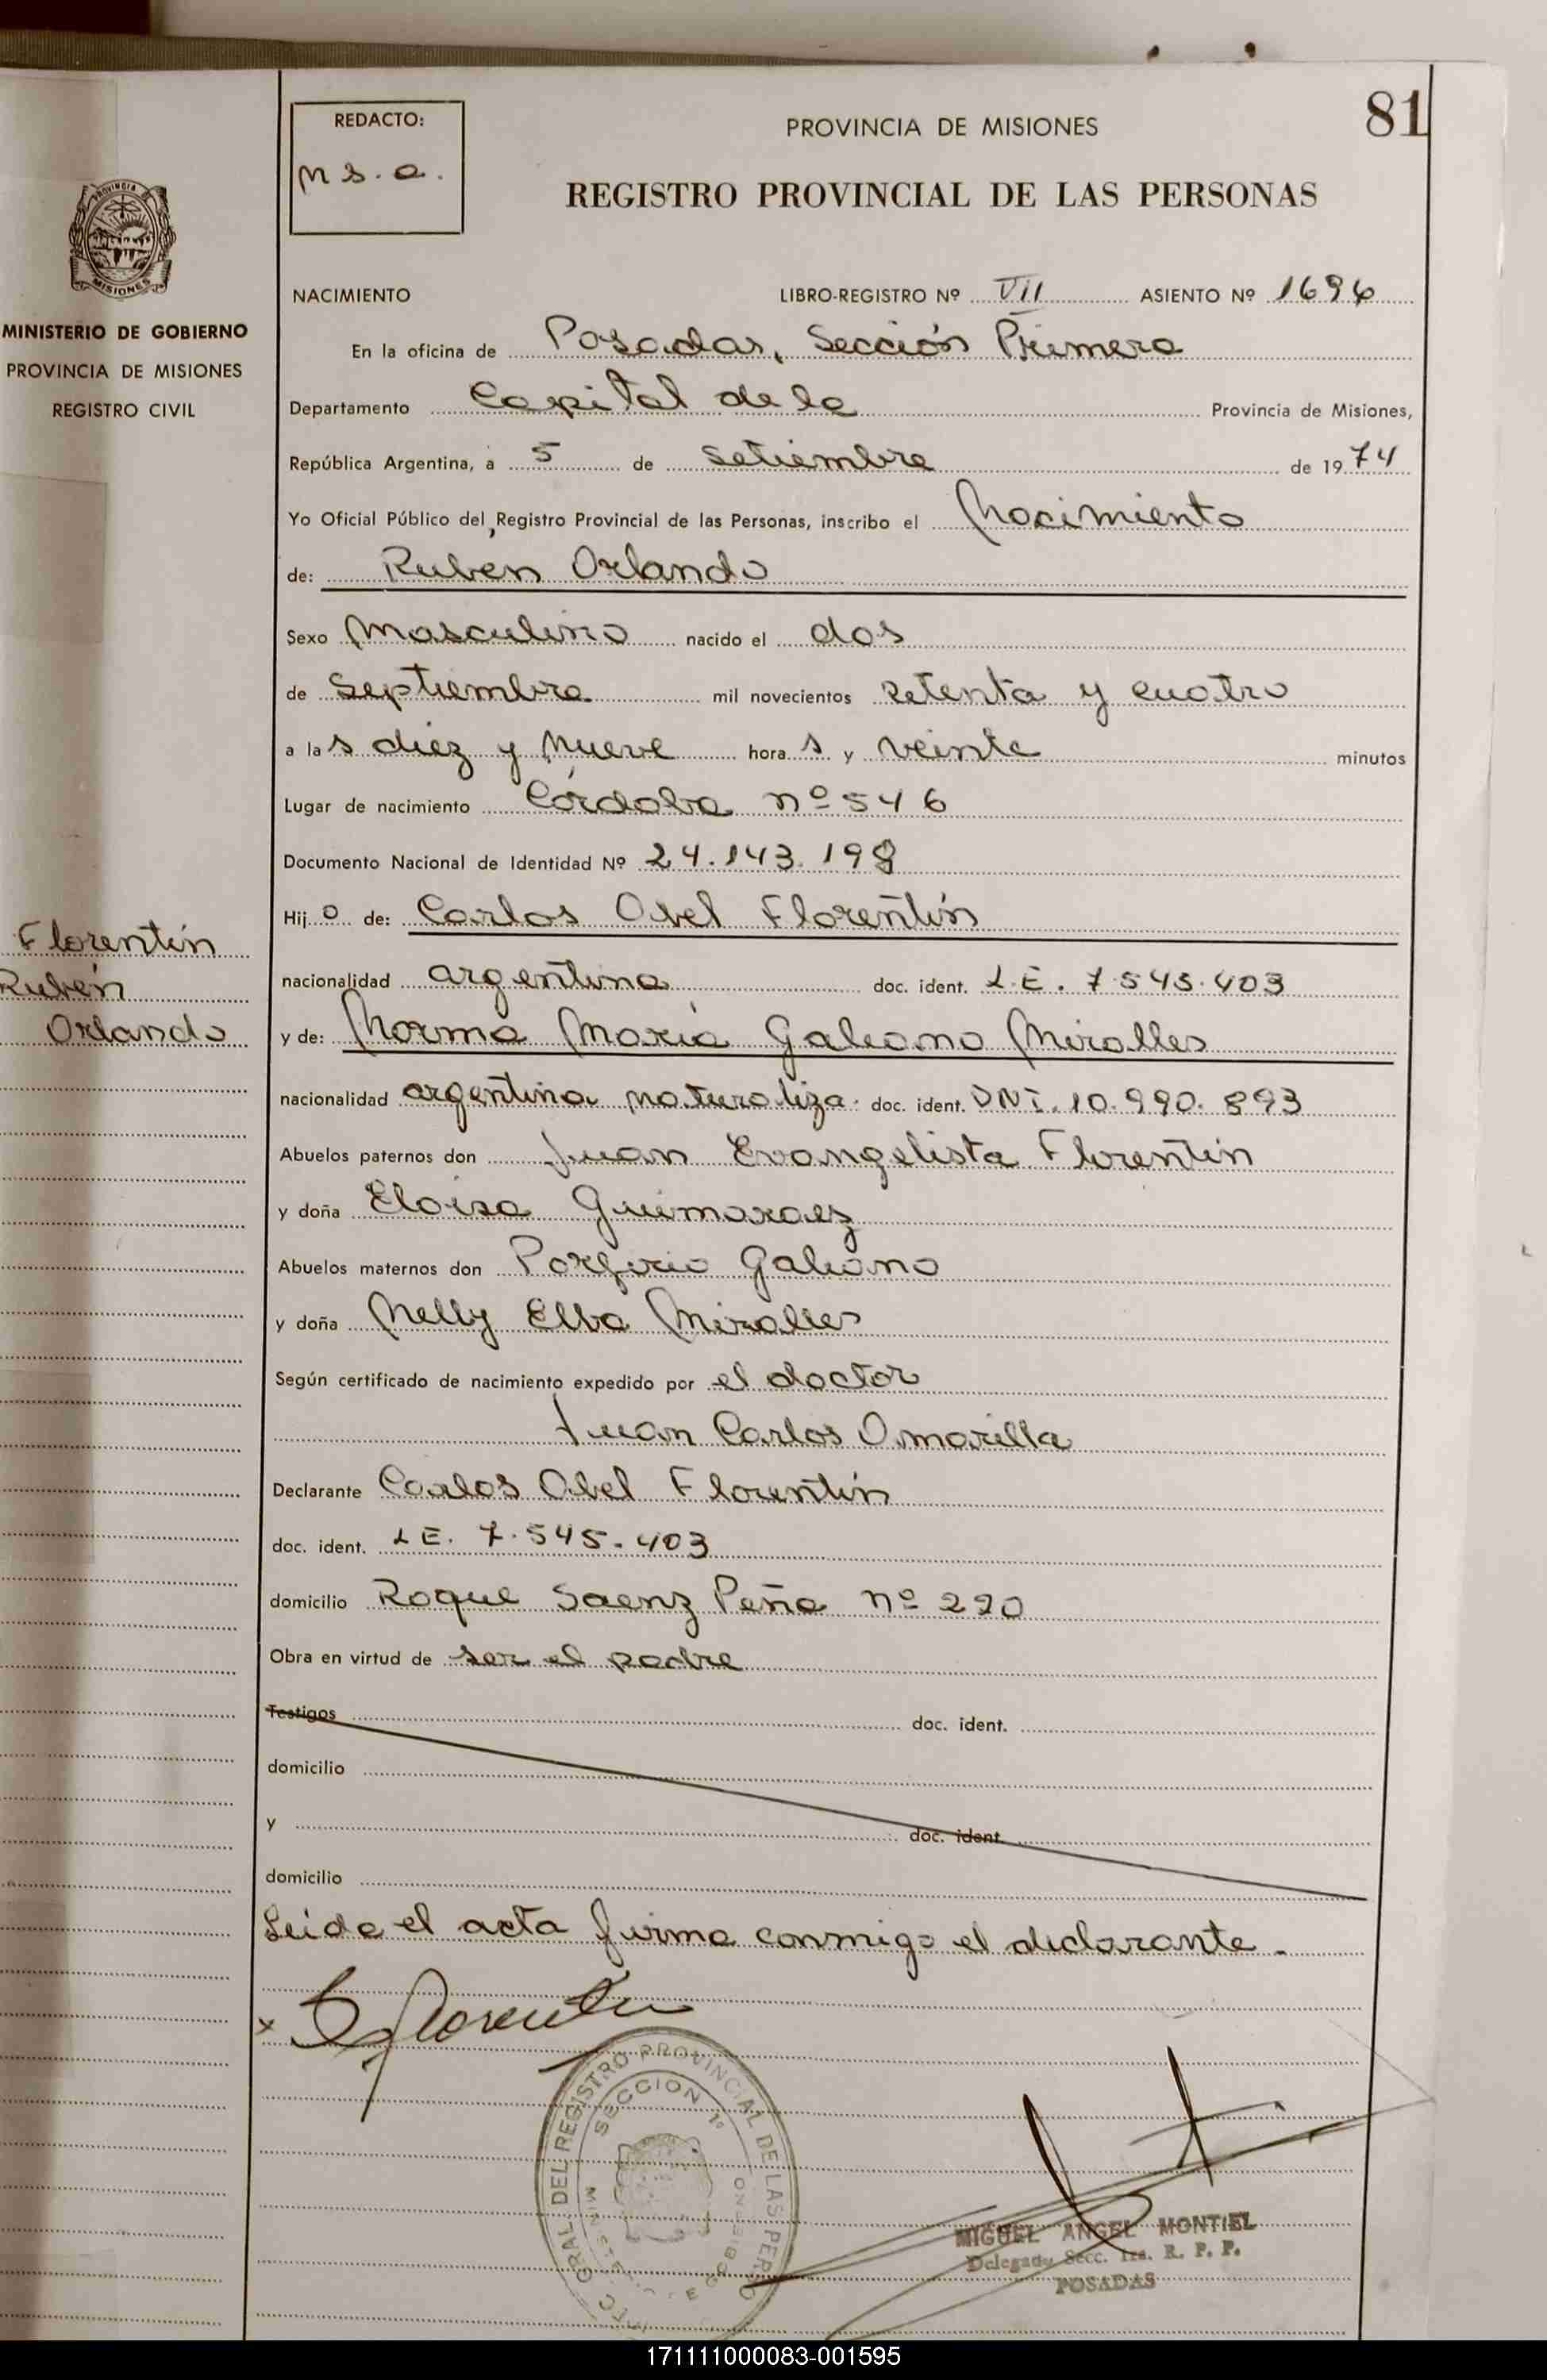 81
REDACTO:
m s. a.
PROVINCIA DE MISIONES
REGISTRO PROVINCIAL DE LAS PERSONAS
PROVINCIA
MISIONES
MINISTERIO DE GOBIERNO
PROVINCIA DE MISIONES
REGISTRO CIVIL
NACIMIENTO LIBRO-REGISTRO Nº VII ASIENTO Nº 1696
En la oficina de Posadas, Sección Primera
Departamento Capital de la Provincia de Misiones,
República Argentina, a 5 de Setiembre de 1974
Yo Oficial Público del Registro Provincial de las Personas, inscribo el Nacimiento
de: Rubén Orlando
Sexo Masculino nacido el dos
de Septiembre mil novecientos setenta y cuatro
a las diez y nueve horas y veinte minutos
Lugar de nacimiento Córdoba nº 546
Documento Nacional de Identidad Nº 24.143.198
Hijo de: Carlos Abel Florentín
nacionalidad argentina doc. ident. L.E. 7.545.403
y de: Norma María Galeano Miralles
nacionalidad argentina naturaliza. doc. ident. DNI. 10.990.893
Abuelos paternos don Juan Evangelista Florentín
y doña Eloisa Guimaraez
Abuelos maternos don Porfirio Galeano
y doña Nelly Elba Miralles
Según certificado de nacimiento expedido por el doctor
Juan Carlos Amarilla
Declarante Carlos Abel Florentín
doc. ident. L E. 7.545.403
domicilio Roque Saenz Peña nº 290
Obra en virtud de ser el padre
Testigos doc. ident.
domicilio
y doc. ident.
domicilio
Leida el acta firma conmigo el declarante.
Florentín
Rubén
Orlando
x Florentin
GRAL. DEL REGISTRO PROVINCIAL DE LAS PERS
SECCION 1º
MIGUEL ANGEL MONTIEL
Delegado Secc. 1ra. R. P. P.
POSADAS
171111000083-001595